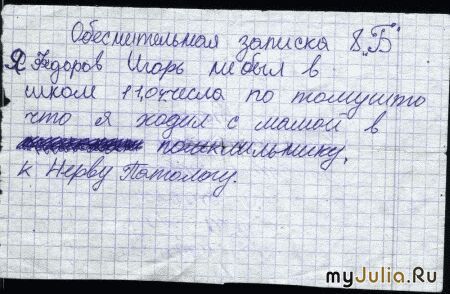 Обеснительная записка 8 "Б"
Я Федоров Игорь небыл в
школ 11,04числа по томушто
что я ходил с мамой в
к Нерву Патологу.
myJulia.Ru